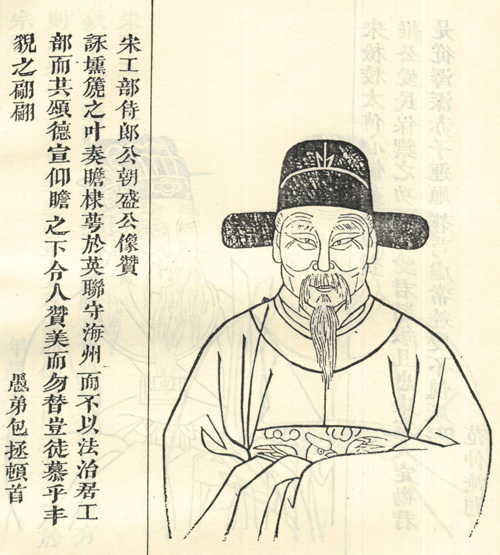 宋工部侍郎公朝盛公像贊
詠壎箎之叶奏瞻棣萼於英聯守海州而不以法治居工
部而共頌德宣仰瞻之下令人贊美而勿替豈徒慕乎丰
貌之翩翩 愚弟包拯頓首